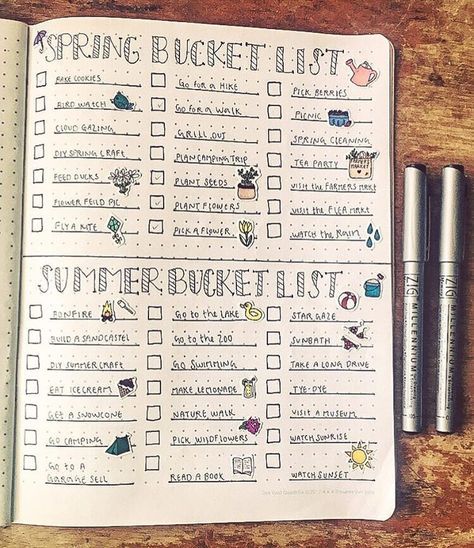 SPRING BUCKET LIST
BAKE COOKIES
BIRD WATCH
CLOUD GAZING
DIY SPRING CRAFT
FEED DUCKS
FLOWER FEILD PIC
FLY A KITE
GO FOR A HIKE
GO FOR A WALK
GRILL OUT
PLAN CAMPING TRIP
PLANT SEEDS
PLANT FLOWERS
PICK A FLOWER
PICK BERRIES
PICNIC
SPRING CLEANING
TEA PARTY
FARMERS MARKET
VISIT THE FARMERS MARKT
VISIT THE FLEA MARKT
WATCH THE RAIN
SUMMER BUCKET LIST
BONFIRE
BUILD A SANDCASTEL
DIY SUMMER CRAFT
EAT ICECREAM
GET A SNOWCONE
GO CAMPING
GO TO A
GARAGE SELL
GO TO THE LAKE
GO TO THE ZOO
GO SWIMMING
MAKE LEMONADE
NATURE WALK
PICK WILDFLOWERS
READ A BOOK
STAR GAZE
SUNBATH
TAKE A LONG DRIVE
TYE-DYE
VISIT A MUSEUM
WATCH SUNRISE
WATCH SUNSET
ZIG MILLENNIUM
ZIG MILLENNIUM
005